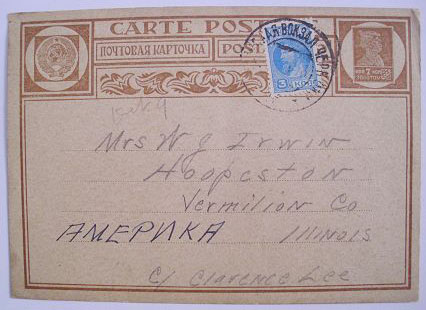 CARTE POSTALE
ПОЧТОВАЯ КАРТОЧКА
7 КОП.
ЗОЛОТОМ
ВОКЗАЛ
Mrs W J Irwin
Hoopeston
Vermilion Co
АМЕРИКА Illinois
c/ Clarence Lee